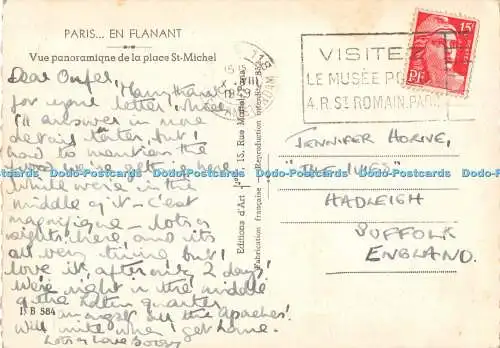 PARIS... EN FLANANT
Vue panoramique de la place St-Michel
Dear
Many thanks
for your letter!
I'll answer in more
detail later, but I
had to mention the
we're getting here
while we're in the
middle of it - C'est
magnifique - Lots of
sights here and its
all very tiring but I
love it, after only 2 days!
We're right in the middle
of the Latin quarter,
all the Apaches!
Will write when I get home.
Lots of Love
B 584
Editions d'Art
15, Rue Martel, Paris
Fabrication française - Reproduction interdite
15
VISITEZ
LE MUSÉE PO
4.R.ST ROMAIN.PARIS
15F
RF
JENNIFER HORNE,
"THE IVIES"
HADLEIGH
SUFFOLK
ENGLAND.
Dodo-Postcards Dodo-Postcards Dodo-Postcards Dodo-Postcards